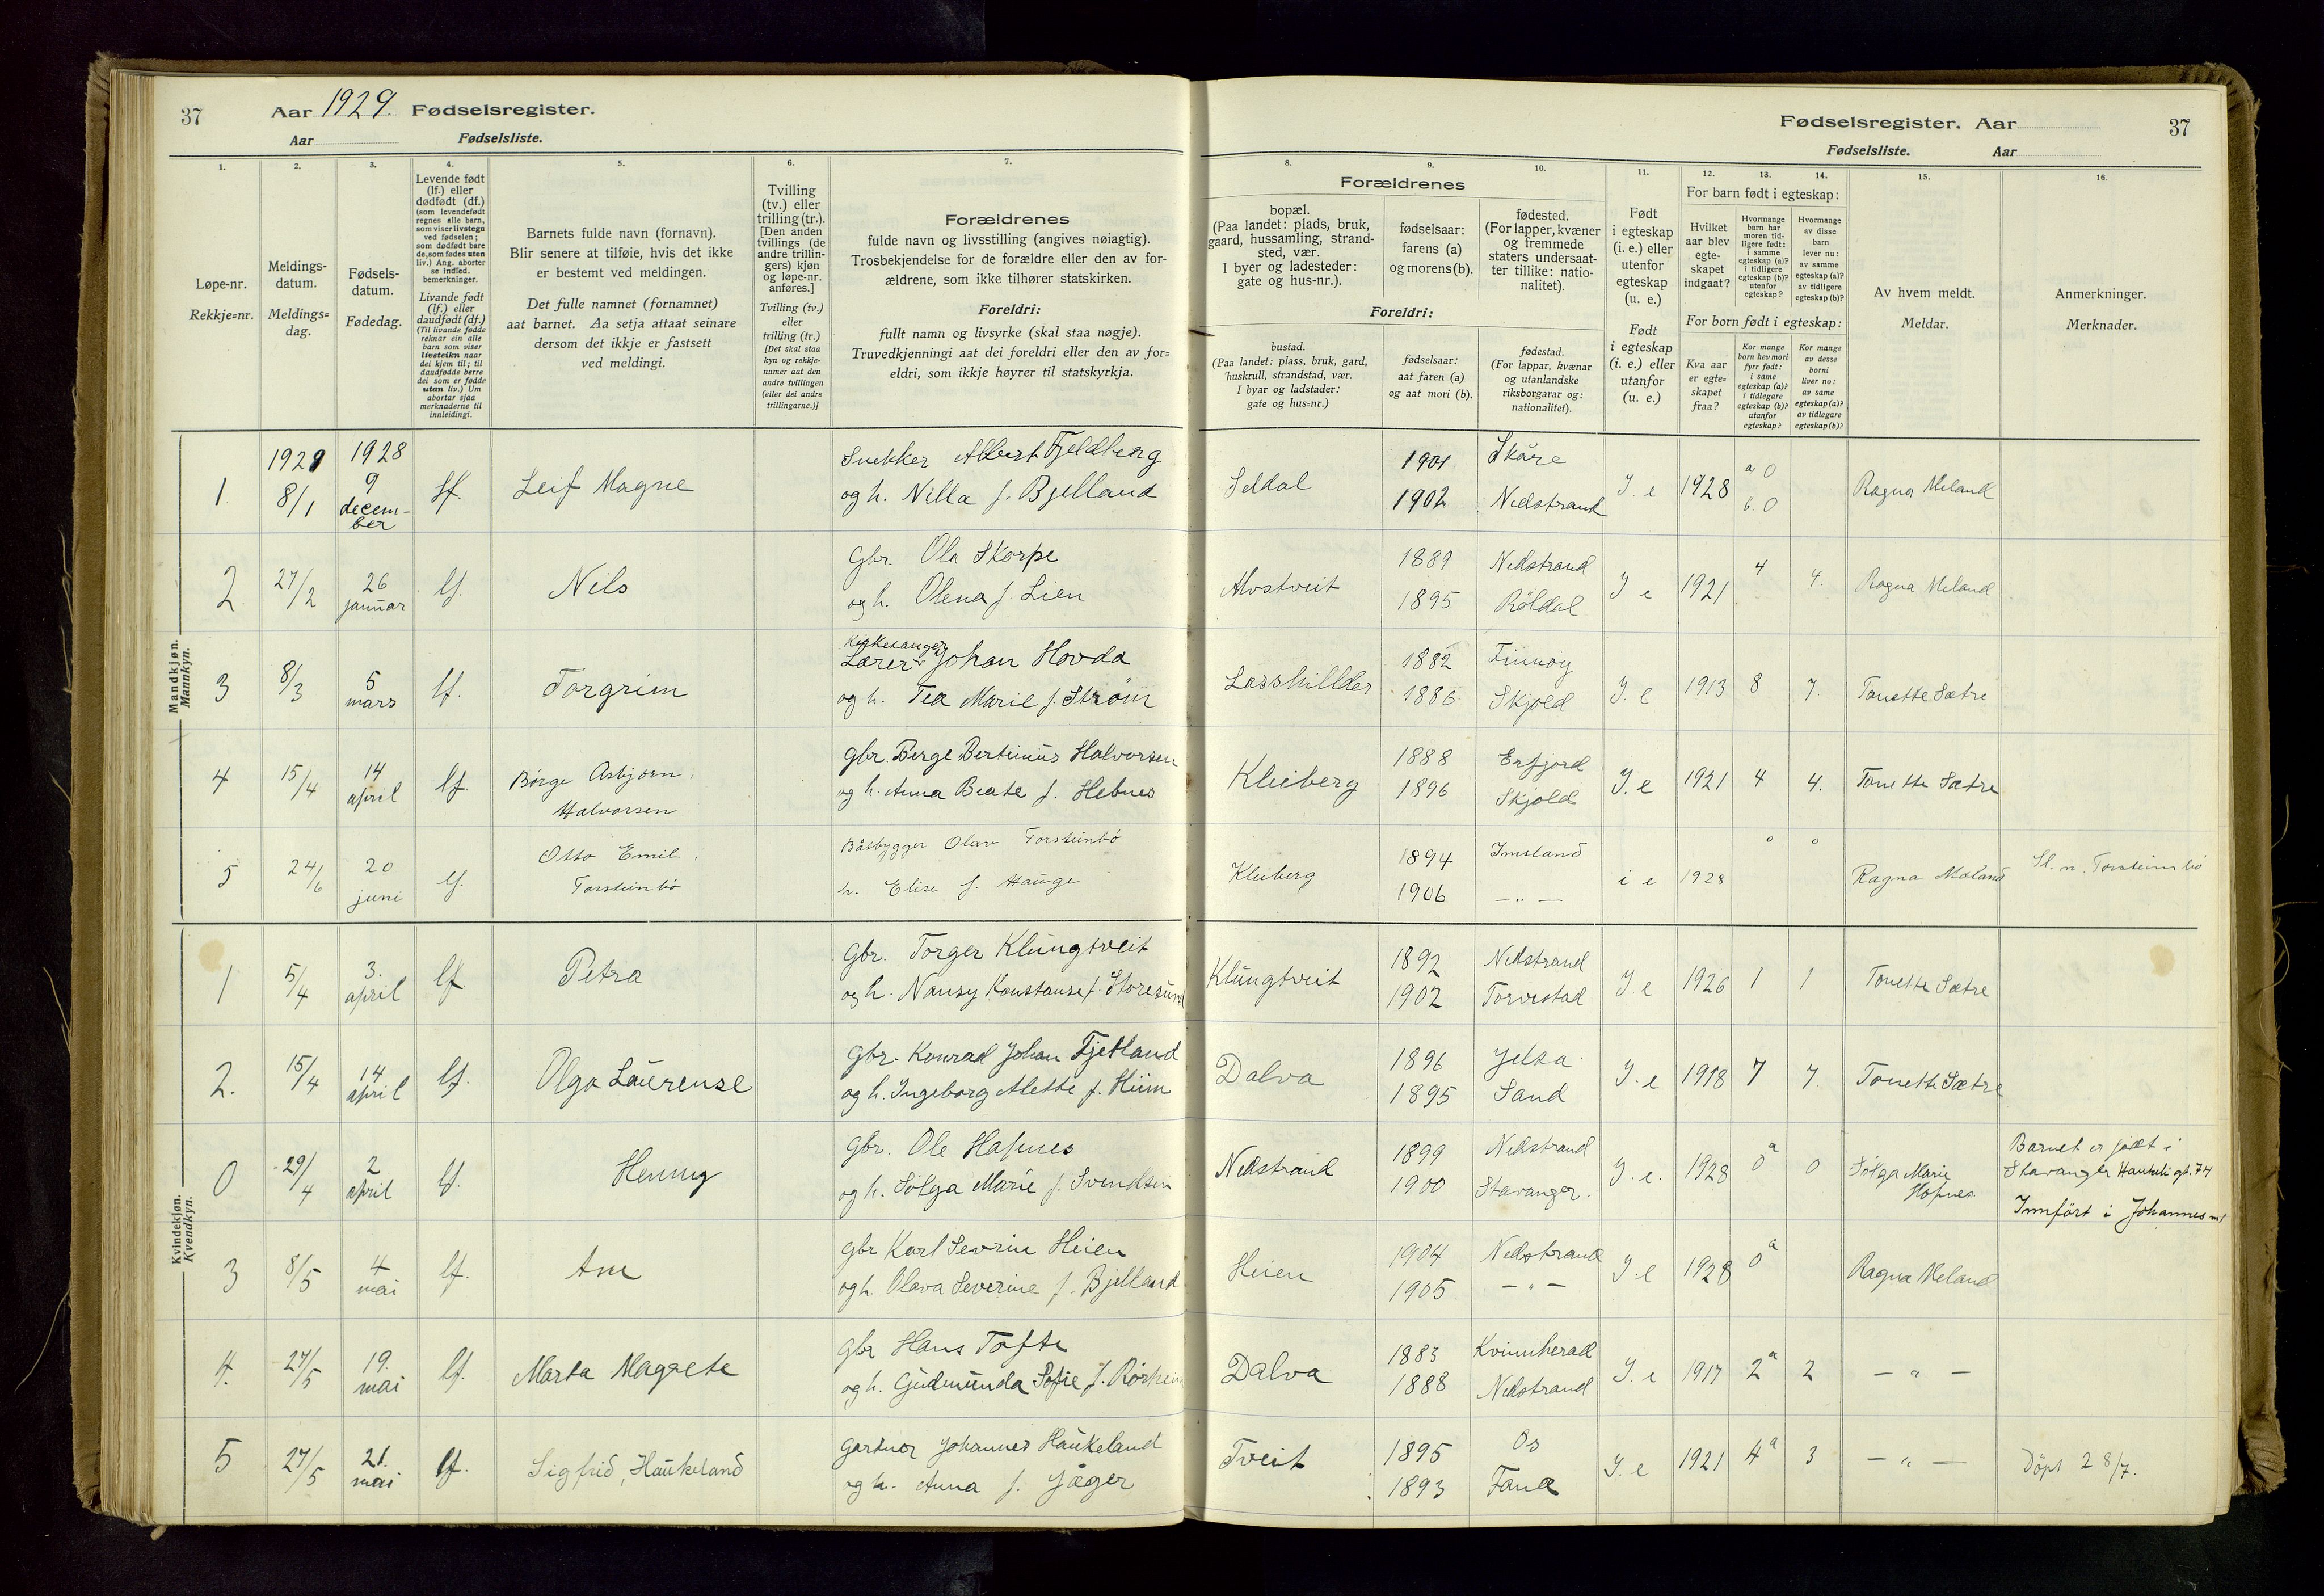 37
Aar 1929. Fødselsregister.
Aar Fødselsliste.
1.
2.
3.
4.
5.
6.
7.
Løpe-nr.
Rekkje=nr.
Meldings-
datum.
Meldings=
dag.
Fødsels-
datum.
Fødedag.
Levende født
(lf.) eller
dødfødt (df.)
(som levendefødt
regnes alle barn,
som viser livstegn
ved fødselen;
som dødfødt bare
de, som fødes uten
liv.) Ang. aborter
se indled.
bemerkninger.
Livande født
(lf.) eller
daudfødt (df.)
(Til livande fødde
reknar ein alle
barn som viser
livsteikn naar
dei kjem til; til
daudfødde berre
dei som er fødde
utan liv.) Um
abortar sjaa
merknaderne til
innleidingi.
Barnets fulde navn (fornavn).
Blir senere at tilføie, hvis det ikke
er bestemt ved meldingen.
Det fulle namnet (fornamnet)
aat barnet. Aa setja attaat seinare
dersom det ikkje er fastsett
ved meldingi.
Tvilling
(tv.) eller
trilling (tr.).
[Den anden
tvillings (de
andre trillin-
gers) kjøn
og løpe-nr.
anføres.]
Tvilling (tv.)
eller
trilling (tr.)
[Det skal staa
kyn og rekkje-
numer aat den
andre tvillingen
(eller dei andre
trillingarne.)]
Forældrenes
fulde navn og livsstilling (angives nøiagtig).
Trosbekjendelse for de forældre eller den av for-
ældrene, som ikke tilhører statskirken.
Foreldri:
fullt namn og livsyrke (skal staa nøgje).
Truvedkjenningi aat dei foreldri eller den av for=
eldri, som ikkje høyrer til statskyrkja.
Mandkjøn.
Mannkyn.
1929 1928
1. 8/1 9 decem-ber lf. Leif Magne
Snekker Albert Fjeldberg
og h. Nilla f. Bjelland
2 27/2 26 januar lf. Nils
Gbr. Ola Skorpe
og h. Olena f. Lien
3 8/3 5 mars lf. Torgrim
Kirkesanger
Lærer Johan Hovda
og h. Tea Marie f. Strøm
4 15/4 14 april lf. Børge Asbjørn
Halvorsen
Gbr. Berge Bertinius Halvorsen
og h. Anna Beate f. Hebnes
5 24/6 20 juni lf. Otto Emil
Torsteinbø
Båtbygger Olav Torsteinbø
h. Elise f. Hauge
Kvindekjøn.
Kvendkyn.
1 5/4 3. april lf Petra
Gbr. Torger Klungtveit
og h. Nansy Konstanse f. Storesund
2. 15/4 14 april lf. Olga Laurense
Gbr. Konrad Johan Fjetland
og h. Ingeborg Alette f. Hiim
0 29/4 2 april lf. Henny
Gbr. Ole Hapnes
og h. Solga Marie f. Svendsen
3 8/5 4 mai lf. Ane
Gbr Karl Sevrin Heien
og h. Olava Severine f. Bjelland
4. 27/5 19. mai lf. Marta Magrete
Gbr Hans Tofte
og h. Gudmunda Sofie f. Rørheim
5 27/5 21. mai lf. Sigfrid, Haukeland
Gartner Johannes Haukeland
og h. Anna f. Jåger
Fødselsregister. Aar
37
Fødselsliste. Aar
8.
9.
10.
11.
12.
13.
14.
15.
16.
Forældrenes
bopæl.
(Paa landet: plads, bruk,
gaard, hussamling, strand-
sted, vær.
I byer og ladesteder:
gate og hus-nr.).
fødselsaar:
farens (a)
og morens (b).
fødested.
(For lapper, kvæner
og fremmede
staters undersaat-
ter tillike: natio-
nalitet).
Foreldri:
bustad.
(Paa landet: plass, bruk, gard,
huskrull, strandstad, vær.
I byar og ladstader:
gate og hus=nr.)
fødselsaar:
aat faren (a)
og aat mori (b).
fødestad.
(For lappar, kvænar
og utanlandske
riksborgarar og:
nationalitet).
Født
i egteskap
(i. e.) eller
utenfor
egteskap
(u. e.)
Født
i egteskap
(i. e.) eller
utanfor
egteskap
(u. e.)
For barn født i egteskap:
Hvilket
aar blev
egte-
skapet
indgaat?
Hvormange
barn har
moren tid-
ligere født:
i samme
egteskap (a)?
i tidligere
egteskap (b)?
utenfor
egteskap?
Hvormange
av disse
barn
lever nu:
av samme
egteskap (a)?
av tidligere
egteskap (b)?
For born født i egteskap:
Kva aar
er egte=
skapet
fraa?
Kor mange
born hev mori
fyrr født:
i same
egteskap (a)?
i tidlegare
egteskap (b)?
utanfor
egteskap?
Kor mange
av desse
borni
liver no:
av same
egteskap (a)?
av tidlegare
egteskap (b)?
Av hvem meldt.
Meldar.
Anmerkninger.
Merknader.
Seldal 1901 Skåre
1902 Nedstrand I. e 1928 a 0 b. 0 Ragna Meland
Alvstveit 1889 Nedstrand
1895 Röldal I e 1921 4 4. Ragna Meland
1882 Finnøy
1886 Skjold I. e 1913 8 7. Tonette Sætre
Kleiberg 1888 Erfjord
1896 Skjold I. e 1921 4 4. Tonette Sætre
Kleiberg 1894 Imsland
1906 — „ — i e 1928 0 0 Ragna Meland Sl. n. Torsteinsbø
Klungtveit 1892 Nedstrand
1902 Torvestad I. e 1926 1 1 Tonette Sætre
Dalva 1896 Jelsa
1895 Sand I. e 1918 7 7. Tonette Sætre
Nedstrand 1899 Nedstrand
1900 Stavanger. I. e. 1928 0 a 0 Solga Marie
Hapnes
Barnet er født i
Stavanger Haukeli gt. 74
Innført i Johannes m/
Heien 1904 Nedstrand
1905 — „ — I. e 1928 0 a Ragna Meland
Dalva 1883 Kvinnherad
1888 Nedstrand I. e 1917 2 a 2 — „ —
Tveit 1895 Os
1893 Fana I. e 1921 4 a 3 — „ — Döpt 28/7.